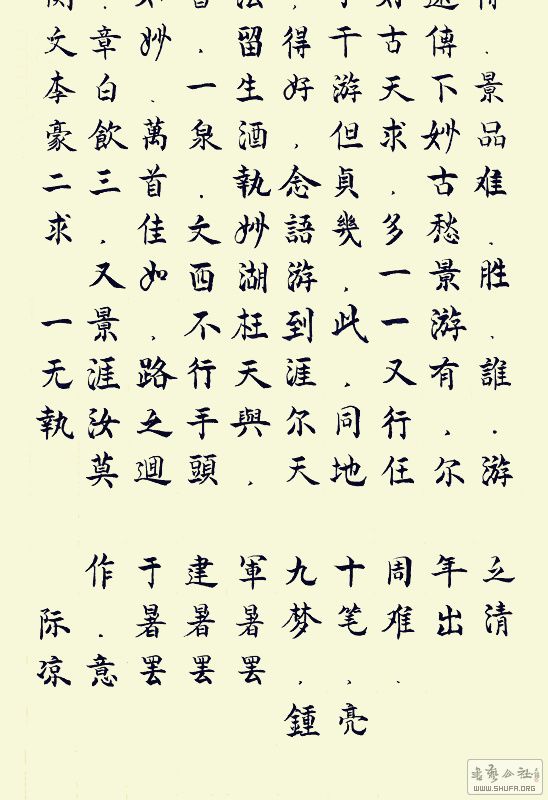 文章妙.留得千古傳.
李白.一生好游天下景
豪飲萬泉酒,但求妙品
二三首.執念貞,古难
求,佳文妙語幾多愁.
又如西湖游,一景胜
一景,不枉到此一游.
无涯路行天涯,又有誰
執汝之手與尔同行,.
莫迴頭,天地任尔游
作于建軍九十周年之
际.暑暑暑梦笔难出清
凉意罢罢罢,,.
鍾亮
WWW.SHUFA.ORG